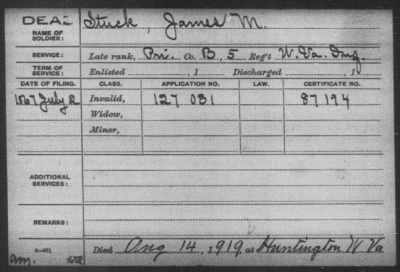 DEAD
NAME OF SOLDIER: Stuck, James M.
SERVICE: Late rank, Pri. Co. B, 5 Reg't W. Va. Inf.
TERM OF SERVICE: Enlisted , 1 Discharged , 1
DATE OF FILING. CLASS. APPLICATION NO. LAW. CERTIFICATE NO.
1867 July 2 Invalid, 127 031 87194
Widow,
Minor,
ADDITIONAL SERVICES:
REMARKS:
Died Aug 14, 1919, at Huntington W Va